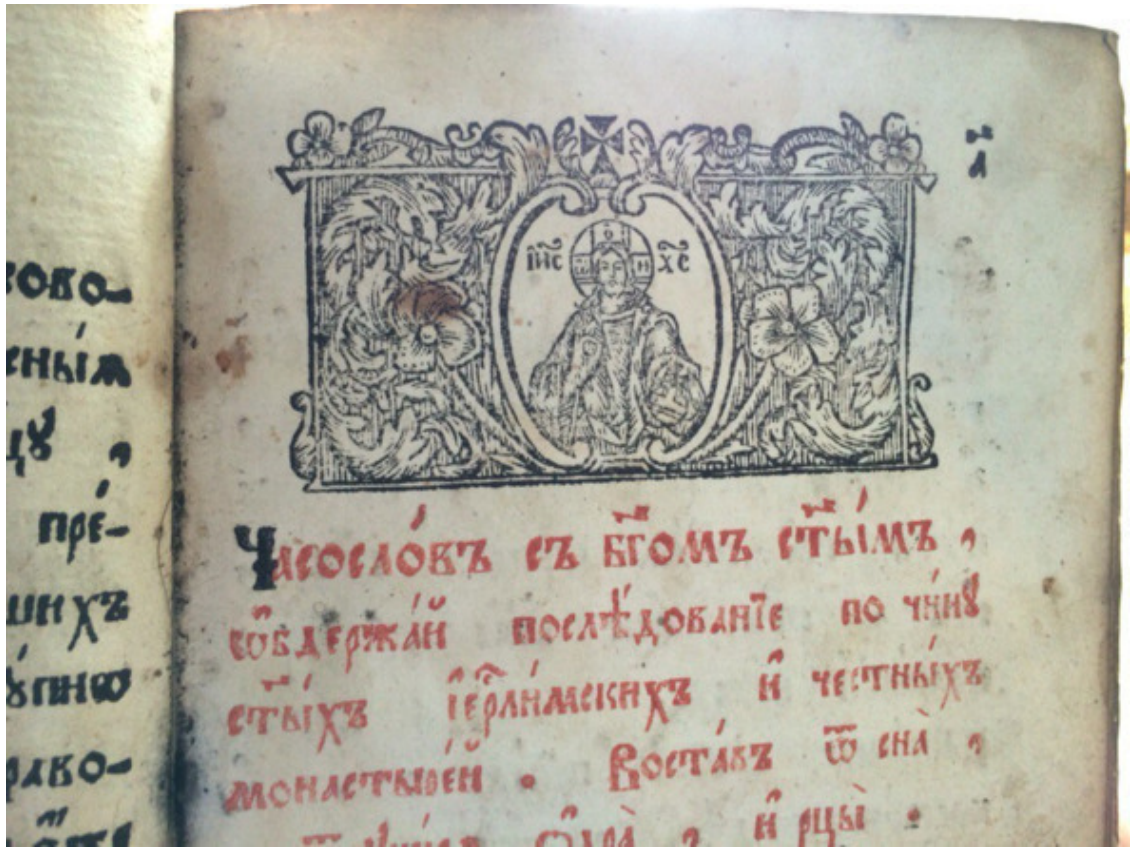 сово-
сны́ѧ
цꙋ ,
пре́-
ших̾ъ
ꙋ́пнѡ
раво-
л҃
І҆И҃С Х҃С
Часосло́въ съ бг҃омъ ст҃ы́мъ ,
сѡ҆бдержа́й послѣ́дованїе по чи́нꙋ
ст҃ы́хъ і҆ер҇ли́мскихъ и҆ честны́хъ
монасты́рей . Воста́въ ѿ сна̀ ,
и҆ рцы̀ .